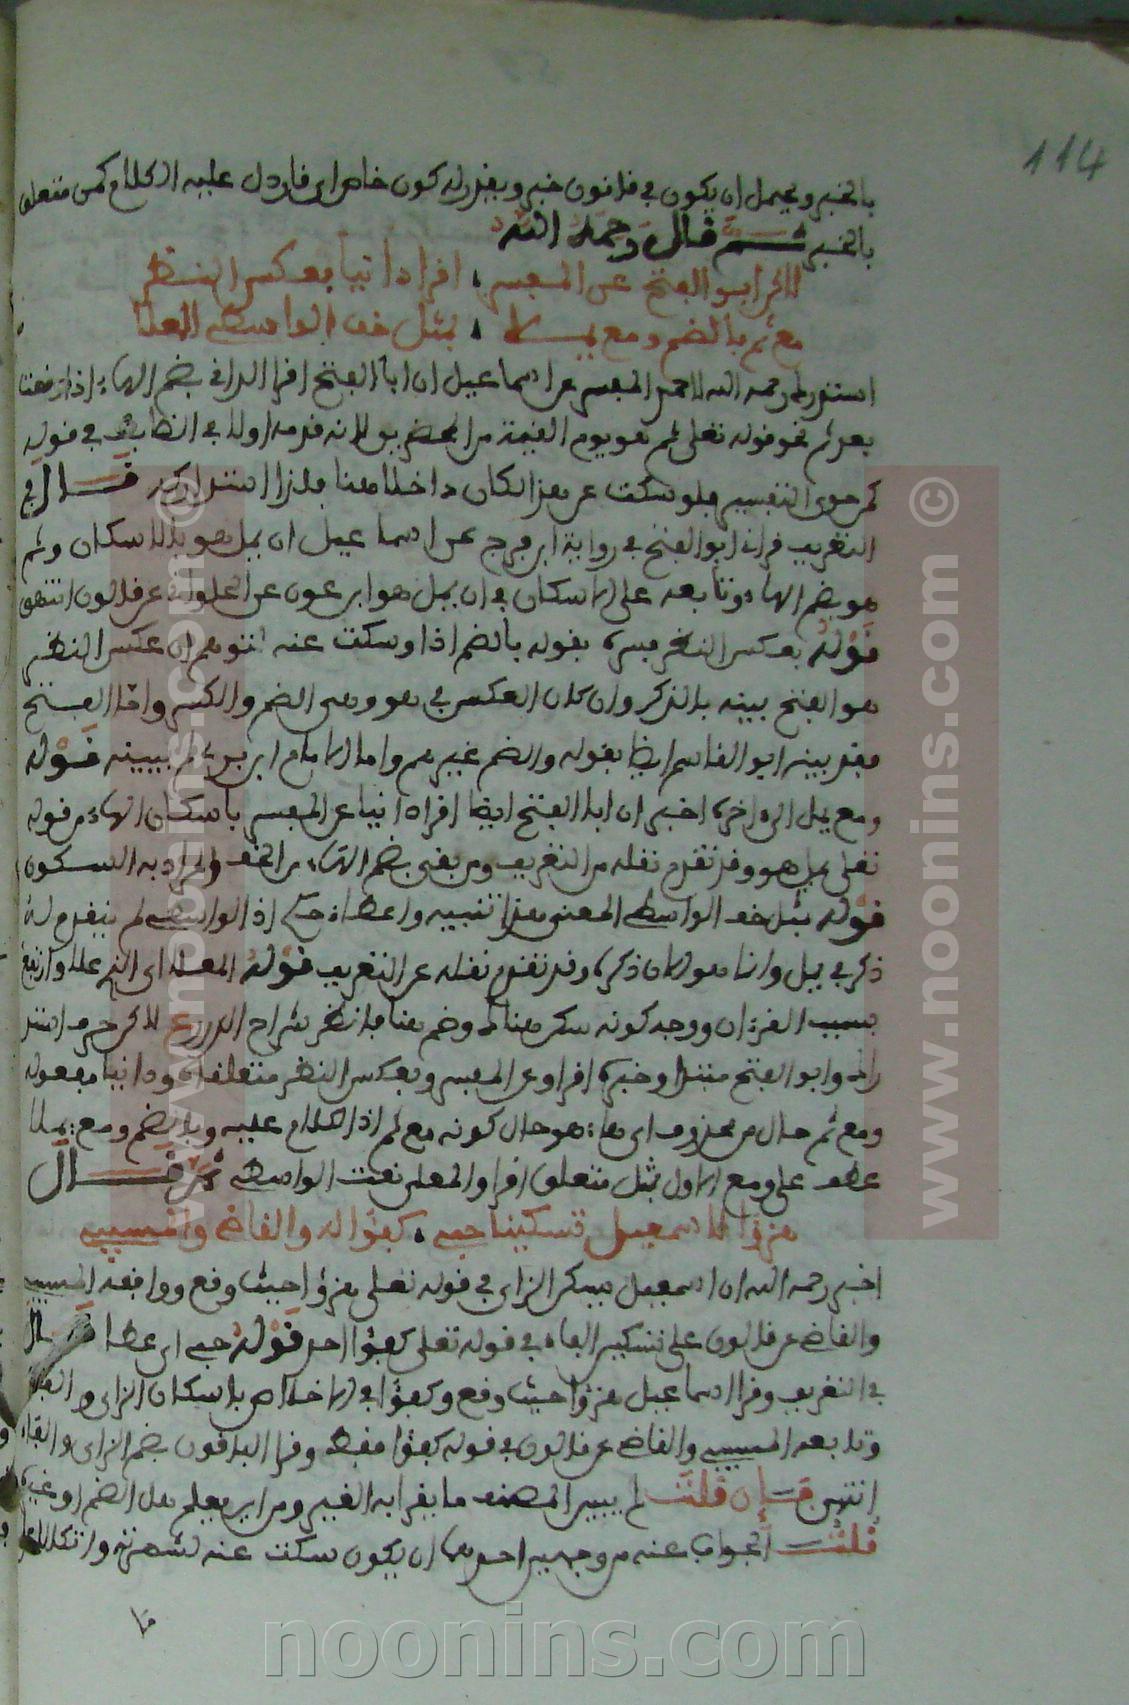 114
بالخبر ويحتمل ان يكون في قانون خبر ويقدر له كون خاص اي فارد دل عليه الكلام كمن متعلق
بالخبر ثم قال رحمه الله
لاكن ابو الفتح عن المفسر افرادا نيا بعكس النظر
مع ثم بالضم ومع يملا بمثل خف الواسطي المعلا
استدرك رحمه الله لاحمد المفسر عن اسماعيل ان ابا الفتح اقرا الداني بضم الهاء اذا وقعت
بعد ثم نحو قوله تعلى ثم هو يوم القيمة من المحضرين لانه قدمه اولا في
فلو سكت عن هذا لكان داخلا هنا فلذا استدركه قال في
التعريف قرات ابو الفتح في رواية ابن فرج عن اسماعيل ان يمل هو بالاسكان وثم
هو بضم الهاء وتابعه على الاسكان في ان يمل هو ابن عون عن الحلواني عن قالون انتهى
قوله بعكس النظر بقوله بالضم اذ لو سكت عنه لتوهم ان عكس النظر
هو الفتح بينه بالذكر وان كان العكس في هو وهي الضم والكسر واما الفتح
فقد بينه ابو القاسم ايضا بقوله والضم غيرهم واما الامام ابن بري لم يبينه قوله
ومع يمل الى اخره اخبر ان ابا الفتح ايضا اقراه انيا عن المفسر باسكان الهاء من قوله
تعلى يمل هو وقد تقدم نقله من التعريف ومن بقي بضم الهاء والمراد به السكون
قوله بمثل خف الواسطي المعنى هذا تشبيه واعطاء حكم اذ الواسطي لم يتقدم له
ذكر في يمل وانما هو الان ذكره وقد تقدم نقله عن التعريف قوله المعلا اي الذي علا وارتفع
بسبب القرءان ووجه كونه سكن هنا وضم هنا فانظر شراح الدرر لاكن حرف استد
راك وابو الفتح مبتدا وخبره اقرا وعن المفسر وبعكس النظر متعلقان ودانيا مفعوله
ومع ثم حال من محذوف اي هاء هو حال كونه مع ثم اذ الكلام عليه وبالضم ومع يملا
عطف على ومع الاول بمثل متعلق اقرا والمعلى نعت الواسطي ثم قال
هزؤا لاسمعيل تسكينا جي كفؤا له والقاضي والمسيبي
اخبر رحمه الله ان اسمعيل يسكن الزاي في قوله تعلى هزؤا حيث وقع ووافقه المسيبي
والقاضي عن قالون على تسكين الفاء في قوله تعلى كفؤا احد قوله جي اي عطا قال
في التعريف وقرا اسماعيل هزؤا حيث وقع وكفؤا في الاخلاص باسكان الزاي والفاء
وتابعه المسيبي والقاضي عن قالون في قوله كفؤا فقط وقرا الباقون بضم الزاي والفاء
انتهى فان قلت لم يبين المصنف ما يقرا به الغير ومن اين يعلم هل الضم او غيره
قلت الجواب عنه من وجهين احدهما ان يكون سكت عنه لشهرته واتكالا على
noonins.com
© www.noonins.com
© www.noonins.com